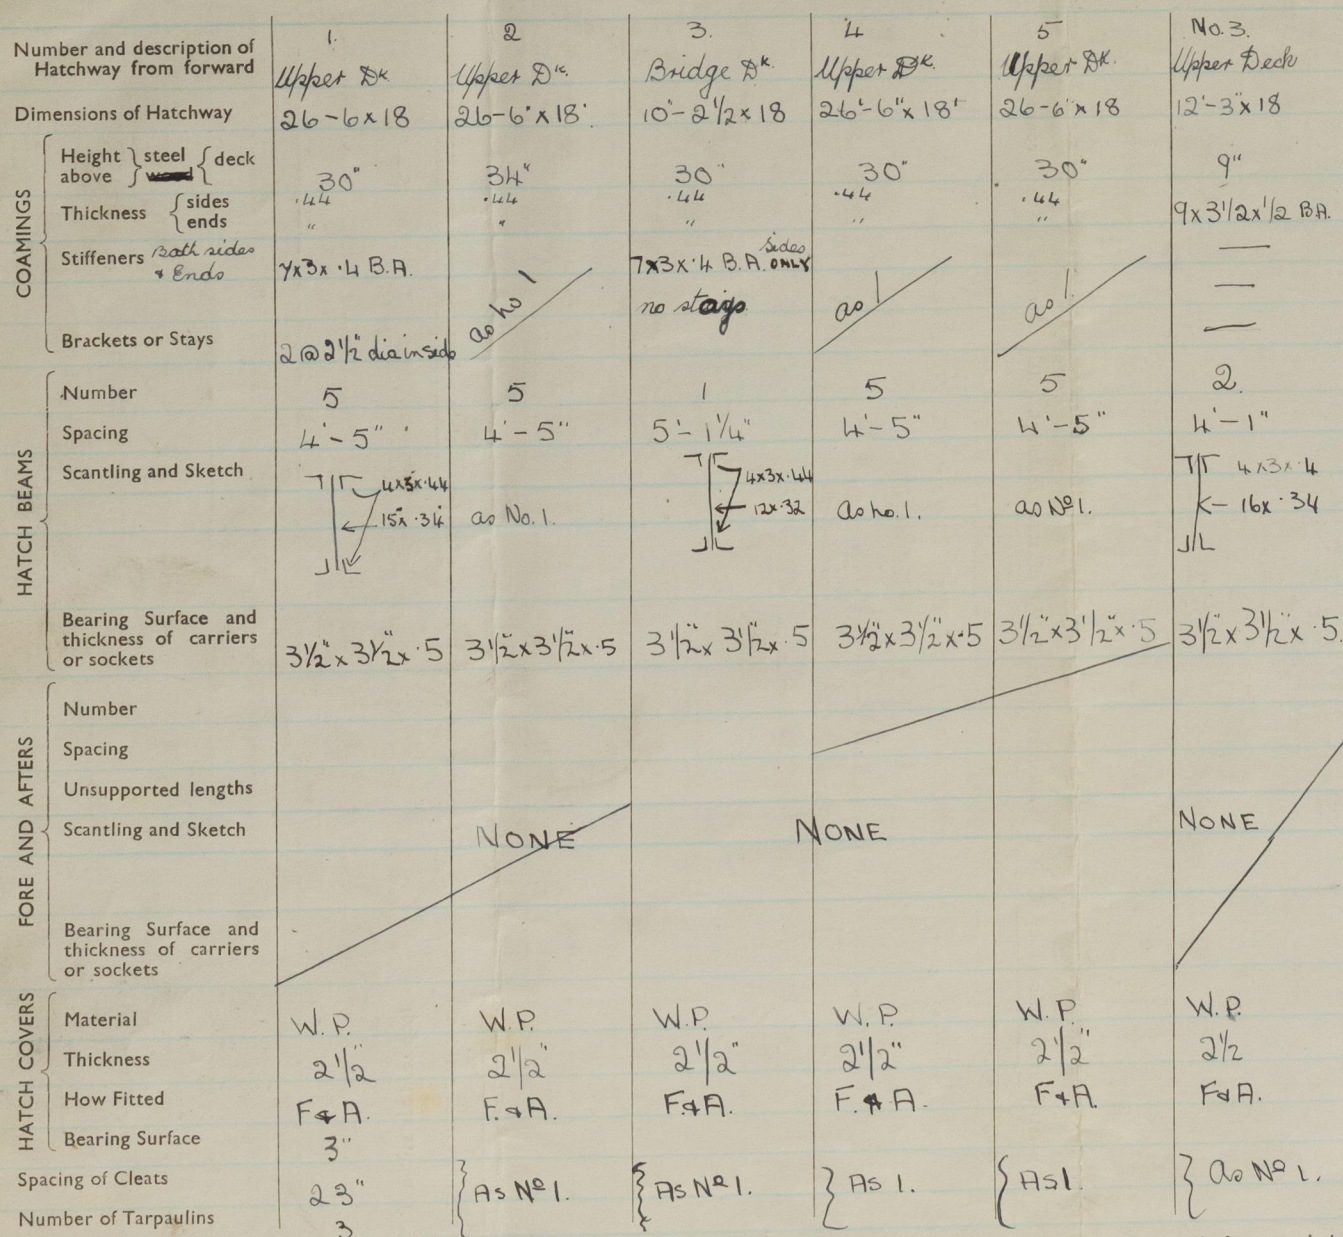 Number and description of Hatchway from forward 1. Upper Dk. 2 Upper Dk. 3. Bridge Dk. 4 Upper Dk. 5 Upper Dk. No. 3. Upper Deck
Dimensions of Hatchway 26-6 x 18 26-6" x 18' 10'-2 1/2 x 18 26'-6" x 18' 26-6" x 18 12'-3" x 18
COAMINGS
Height above steel wood deck 30" 34" 30" 30" 30" 9"
Thickness sides .44 .44 .44 .44 .44 9 x 3 1/2 x 1/2 B.A.
ends " " " " "
Stiffeners Both sides & Ends 7x3x.4 B.A. as no 1 7x3x.4 B.A. sides ONLY as 1 as 1. —
no stays —
Brackets or Stays 2 @ 2 1/2" dia inside —
HATCH BEAMS
Number 5 5 1 5 5 2.
Spacing 4'-5" 4'-5" 5'-1 1/4" 4'-5" 4'-5" 4'-1"
Scantling and Sketch 4x3x.44 4x3x.44 4x3x.4
15" x .34 as No. 1. 12x.32 as no. 1. as No 1. 16x.34
Bearing Surface and thickness of carriers or sockets 3 1/2" x 3 1/2" x .5 3 1/2" x 3 1/2" x .5 3 1/2" x 3 1/2" x .5 3 1/2" x 3 1/2" x .5 3 1/2" x 3 1/2" x .5 3 1/2" x 3 1/2" x .5
FORE AND AFTERS
Number
Spacing
Unsupported lengths
Scantling and Sketch NONE NONE NONE
Bearing Surface and thickness of carriers or sockets
HATCH COVERS
Material W.P. W.P. W.P. W.P. W.P. W.P.
Thickness 2 1/2" 2 1/2" 2 1/2" 2 1/2" 2 1/2" 2 1/2
How Fitted F & A. F. & A. F. & A. F. & A. F & A. F & A.
Bearing Surface 3"
Spacing of Cleats 23" As No 1. As No 1. As 1. As 1. as No 1.
Number of Tarpaulins 3